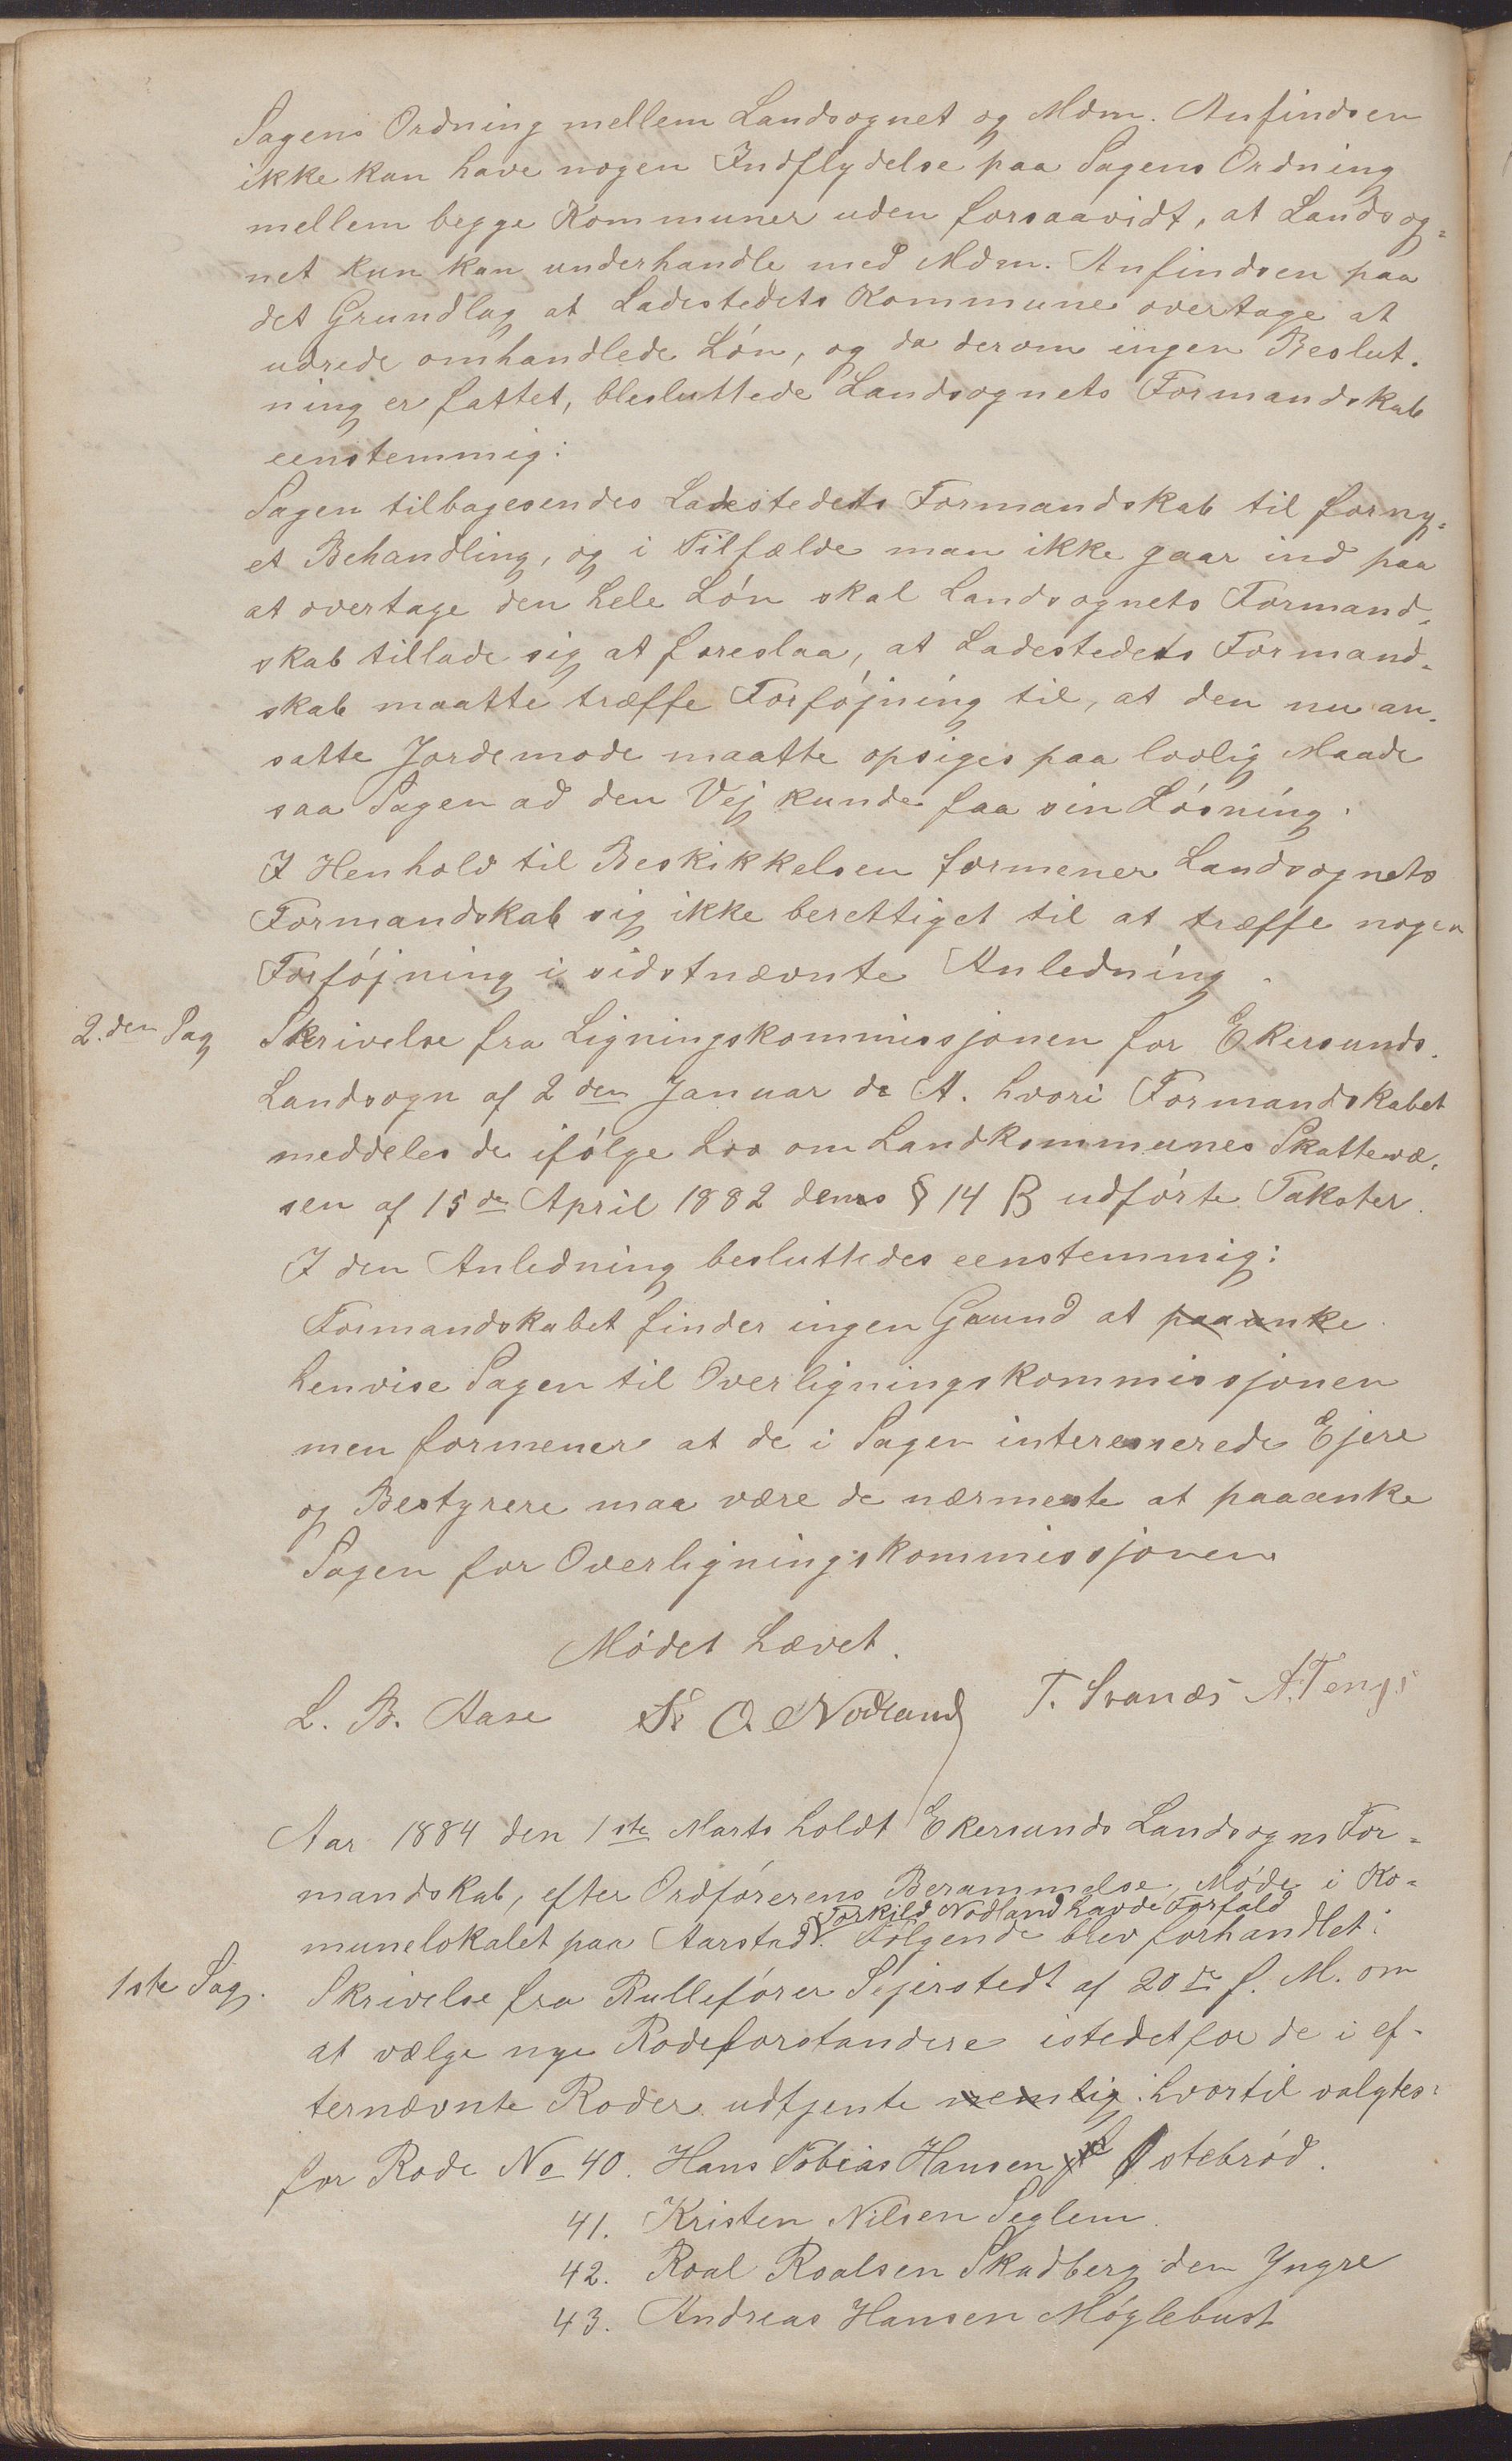 Sagens Ordning mellem Landsognet og Mdm. Anfindsen
ikke kan have nogen Indflydelse paa Sagens Ordning
mellem begge Kommuner uden forsaavidt, at Landsog=
net kun kan underhandle med Mdm. Anfindsen paa
det Grundlag at Ladestedets Kommune overtage at
udrede omhandlede Løn, og da derom ingen Beslut.
ning er fattet, blesluttede Landsognets Formandskab
eenstemmig:
Sagen tilbagesendes Ladestedets Formandskab til forny=
et Behandling, og i Tilfælde man ikke gaar ind paa
at overtage den hele Løn skal Landsognets Formand=
skab tillade sig at foreslaa, at Ladestedets Formand=
skab maatte træffe Forføjning til, at den nu an=
satte Jordemode maatte opsiges paa lovlig Maade
saa Sagen ad den Vej kunde faa sin Løsning.
I Henhold til Beskikkelsen formener Landsognets
Formandskab sig ikke berettiget til at træffe nogen
Forføjning i sidstnævnte Anledning.
2.den Sag Skrivelse fra Ligningskommissjonen for Ekersunds.
Landsogn af 2 den Januar d. A. hvori Formandskabet
meddeles de ifølge Lov om Landkommunes Skattevæ=
sen af 15 de April 1882 dens § 14 B udførte Takster.
I den Anledning besluttedes eenstemmig:
Formandskabet finder ingen Grund at paaanke
henvise Sagen til Overligningskommissjonen
men formener at de i Sagen interesserede Ejere
og Bestyrere maa være de nærmeste at paaanke
Sagen for Overligningskommissjonen
Mødet hævet.
L. B. Aase O. Nodland T. Svanes A. Tengs
Aar 1884 den 1 ste Marts holdt Ekersunds Landsogns For=
mandskab, efter Ordførerens Berammelse, Møde i Ko=
Torkild Nodland havde Forfald
munelokalet paa Aarstad. Følgende blev forhandlet:
1ste Sag. Skrivelse fra Rullefører Sejerstedt af 20 de f. M. om
at vælge nye Rodeforstandere istedetfor de i ef=
ternævnte Roder udtjente nemlig: hvortil valgtes:
for Rode No 40. Hans Tobias Hansen Ystebrød.
41. Kristen Nilsen Seglem.
42. Roal Roalsen Skadberg den Yngre
43. Andreas Hansen Møglebust